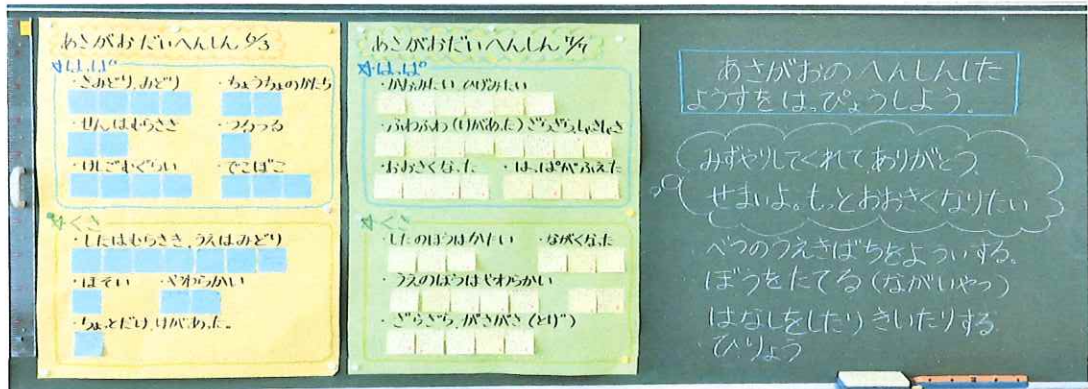 あさがおだいへんしん 6/3
はっぱ
・きみどり、みどり
・ちょうちょのかたち
・せんはむらさき
・つるつる
・けしごむぐらい
・でこぼこ
くき
・したはむらさき、うえはみどり
・ほそい
・やわらかい
・ちょっとだけ、けがあった。
あさがおだいへんしん 7/4
はっぱ
・かおみたい ひげみたい
・ふわふわ(けがあった)ざらざら、しゃきしゃき
・おおきくなった
・はっぱがふえた
くき
・したのほうはかたい
・ながくなった
・うえのほうはやわらかい
・ざらざら、がさがさ(とげ)
あさがおの へんしんした
ようすを はっぴょうしよう。
みずやりしてくれて、ありがとう。
せまいよ。もっとおおきくなりたい
べつのうえきばちをよういする。
ぼうをたてる(ながいやつ)
はなしをしたり きいたりする
・ひりょう